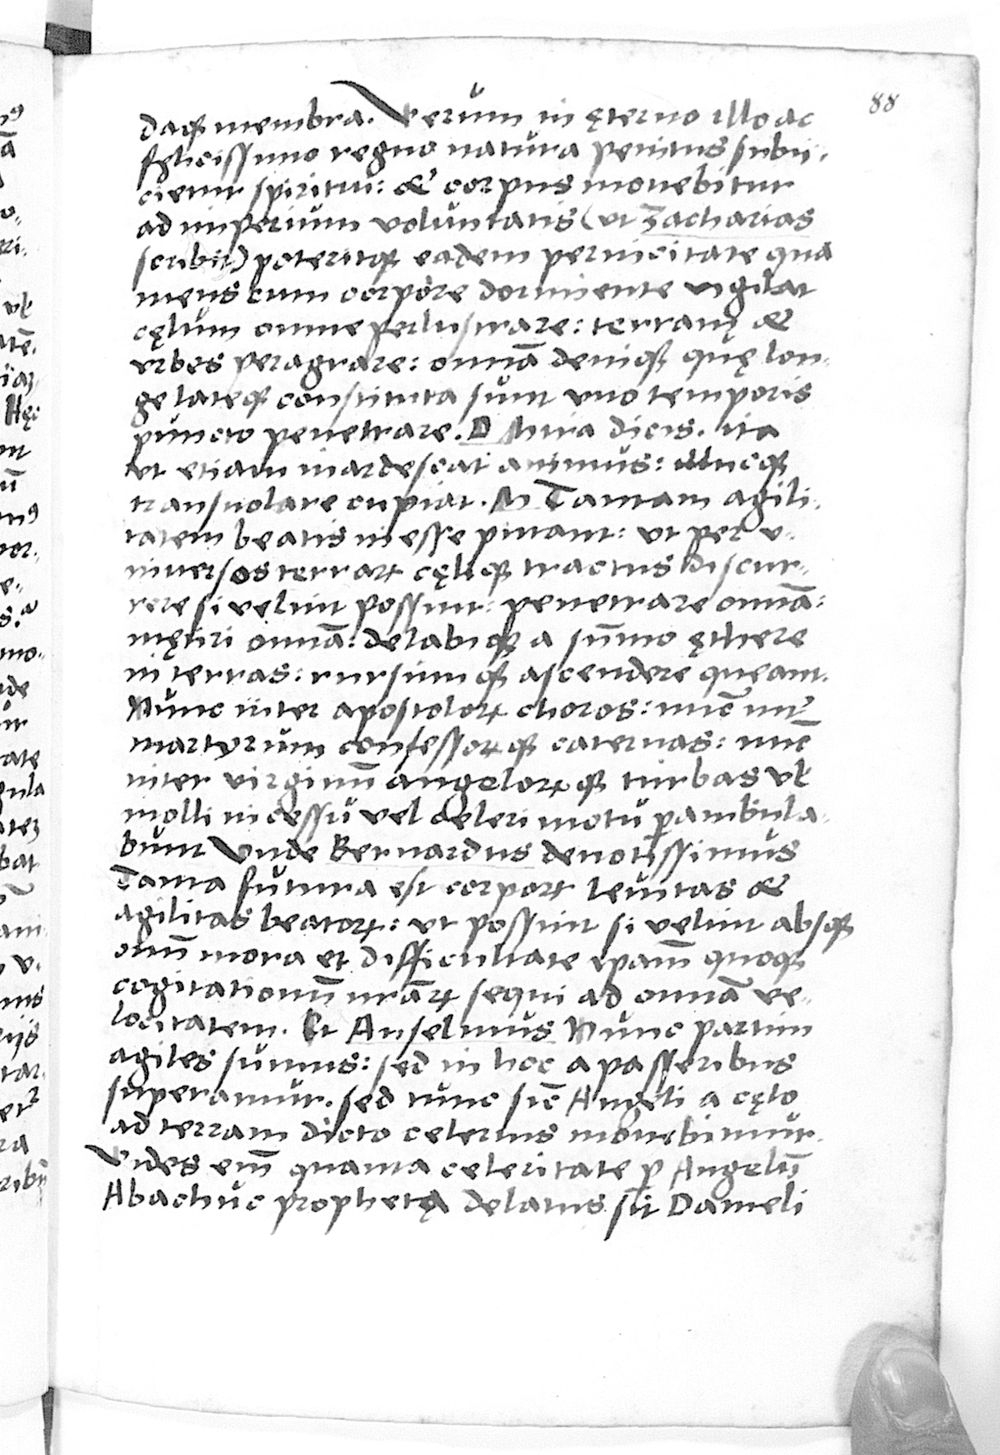 88
daq3 membra. Verum in ęterno illo ac
fęlicissimo regno natura penitus subii-
cietur spiritui: & corpus mouebitur
ad imperium voluntatis (ut Zacharias
scribit) poteritq3 eadem pernicitate qua
mens cum corpore dormiente vigilat
cęlum omne perlustrare: terram &
vrbes peragrare: omnā deniq3 quę lon-
ge lateq3 constituta sunt vno temporis
puncto penetrare. D Mira dicis. ita
ut etiam inardescat animus: illucq3
transuolare cupiat. M Tantam agili-
tatem beatis inesse putant: ut per v-
niuersos terraꝝ cęliq3 tractus discur-
rere si velint possint: penetrare omnā:
mętiri omnā: delabiq3 a sūmo ęthere
in terras: rursumq3 ascendere queant.
Nunc inter apostoloꝝ choros: nūc int͛
martyrum confessoꝝq3 cateruas: nūc
inter virginū angeloꝝq3 turbas vł
molli incessu vel celeri motu ꝑambula-
bunt Vnde Bernardus deuotissimus
Tanta futura est corpoꝝ leuitas &
agilitas beatoꝝ: ut possint si velint absq3
omī mora et difficultate ipam̄ quoq3
cogitationū nrāꝝ sequi ad omnā ve-
locitatem. Et Anselmus Nunc partim
agiles sumus: sed in hoc a passeribus
superamur. sed tunc sic̄ Angeli a cęlo
ad terram dicto celerius mouebimur.
Vides em̄ quanta celeritate ꝑ Angelū
Abachuc prophetą delatus sit Danieli